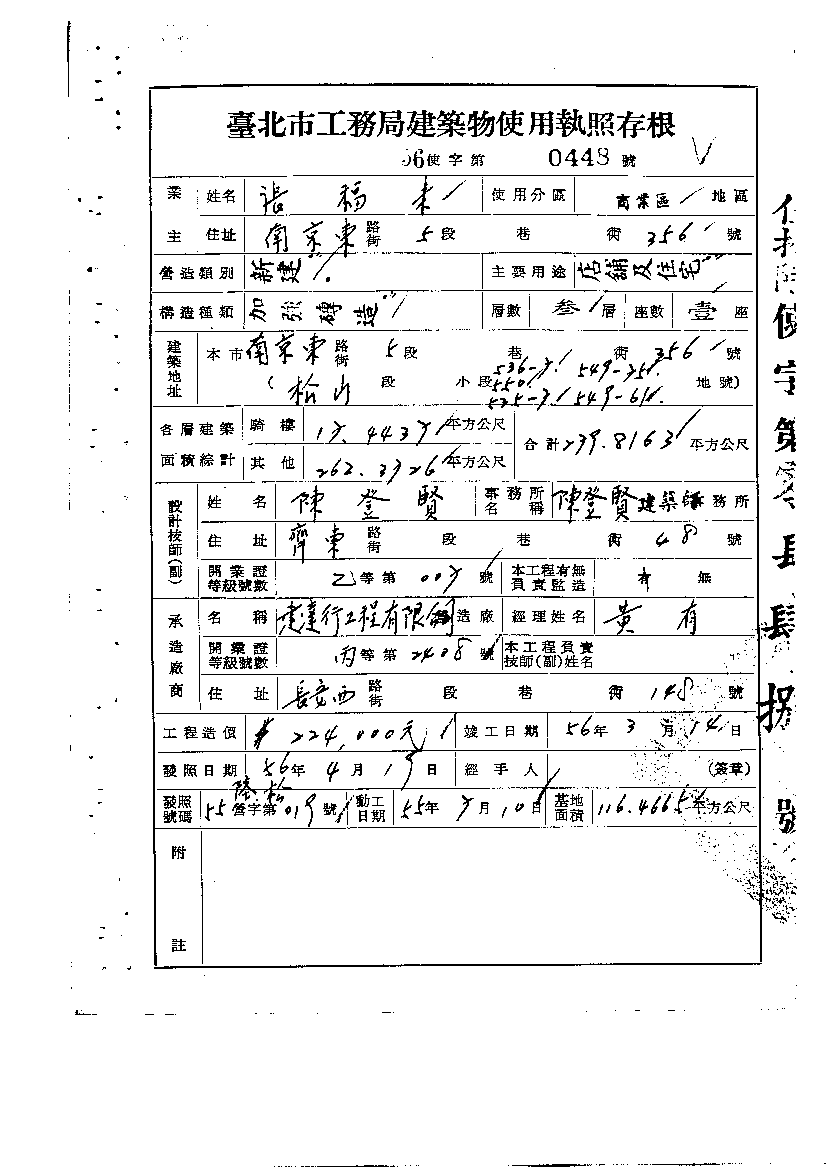 臺北市工務局建築物使用執照存根
56使字第 0448 號
業主 姓名 張福東 使用分區 商業區 地區
住址 南京東路街 5段 巷 街 356 號
營造類別 新建 主要用途 店舖及住宅
構造種類 加強磚造 層數 叁層 座數 壹座
建築地址 本市 南京東路街 5段 巷 街 356 號
(松山 段 小段 地號)
各層建築面積綜計 騎樓 平方公尺 合計 平方公尺
其他 平方公尺
設計技師(副) 姓名 陳登賢 事務所名稱 陳登賢建築師事務所
住址 齊東路街 段 巷 街 48 號
開業證等級號數 乙等第 號 本工程有無負責監造 有 無
承造廠商 名稱 建達行工程有限公司 造廠 經理姓名 黃有
開業證等級號數 丙等第 2408 號 本工程負責技師(副)姓名
住址 長安西路街 段 巷 街 148 號
工程造價 $224,000元 竣工日期 56年 3月 14日
發照日期 56年 4月 日 經手人 (簽章)
發照號碼 55 營字第 019 號 動工日期 55年 月 10日 基地面積 116.4665 平方公尺
附註
使字第零肆肆捌號